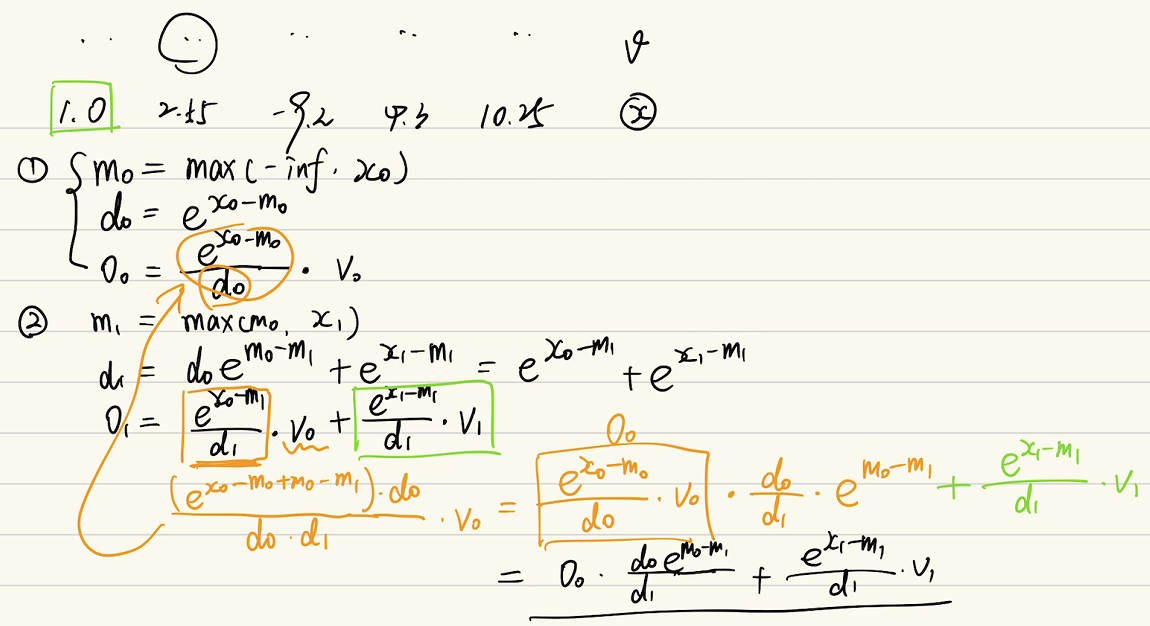 v
1.0 2.45 -9.2 4.3 10.25 x
① m₀ = max(-inf, x₀)
d₀ = e^{x₀-m₀}
O₀ = \frac{e^{x₀-m₀}}{d₀} · V₀
② m₁ = max(m₀, x₁)
d₁ = d₀e^{m₀-m₁} + e^{x₁-m₁} = e^{x₀-m₁} + e^{x₁-m₁}
O₁ = \frac{e^{x₀-m₁}}{d₁} · V₀ + \frac{e^{x₁-m₁}}{d₁} · V₁
O₀
\frac{(e^{x₀-m₀+m₀-m₁})·d₀}{d₀·d₁} · V₀ = \frac{e^{x₀-m₀}}{d₀} · V₀ · \frac{d₀}{d₁} · e^{m₀-m₁} + \frac{e^{x₁-m₁}}{d₁} · V₁
= O₀ · \frac{d₀e^{m₀-m₁}}{d₁} + \frac{e^{x₁-m₁}}{d₁} · V₁